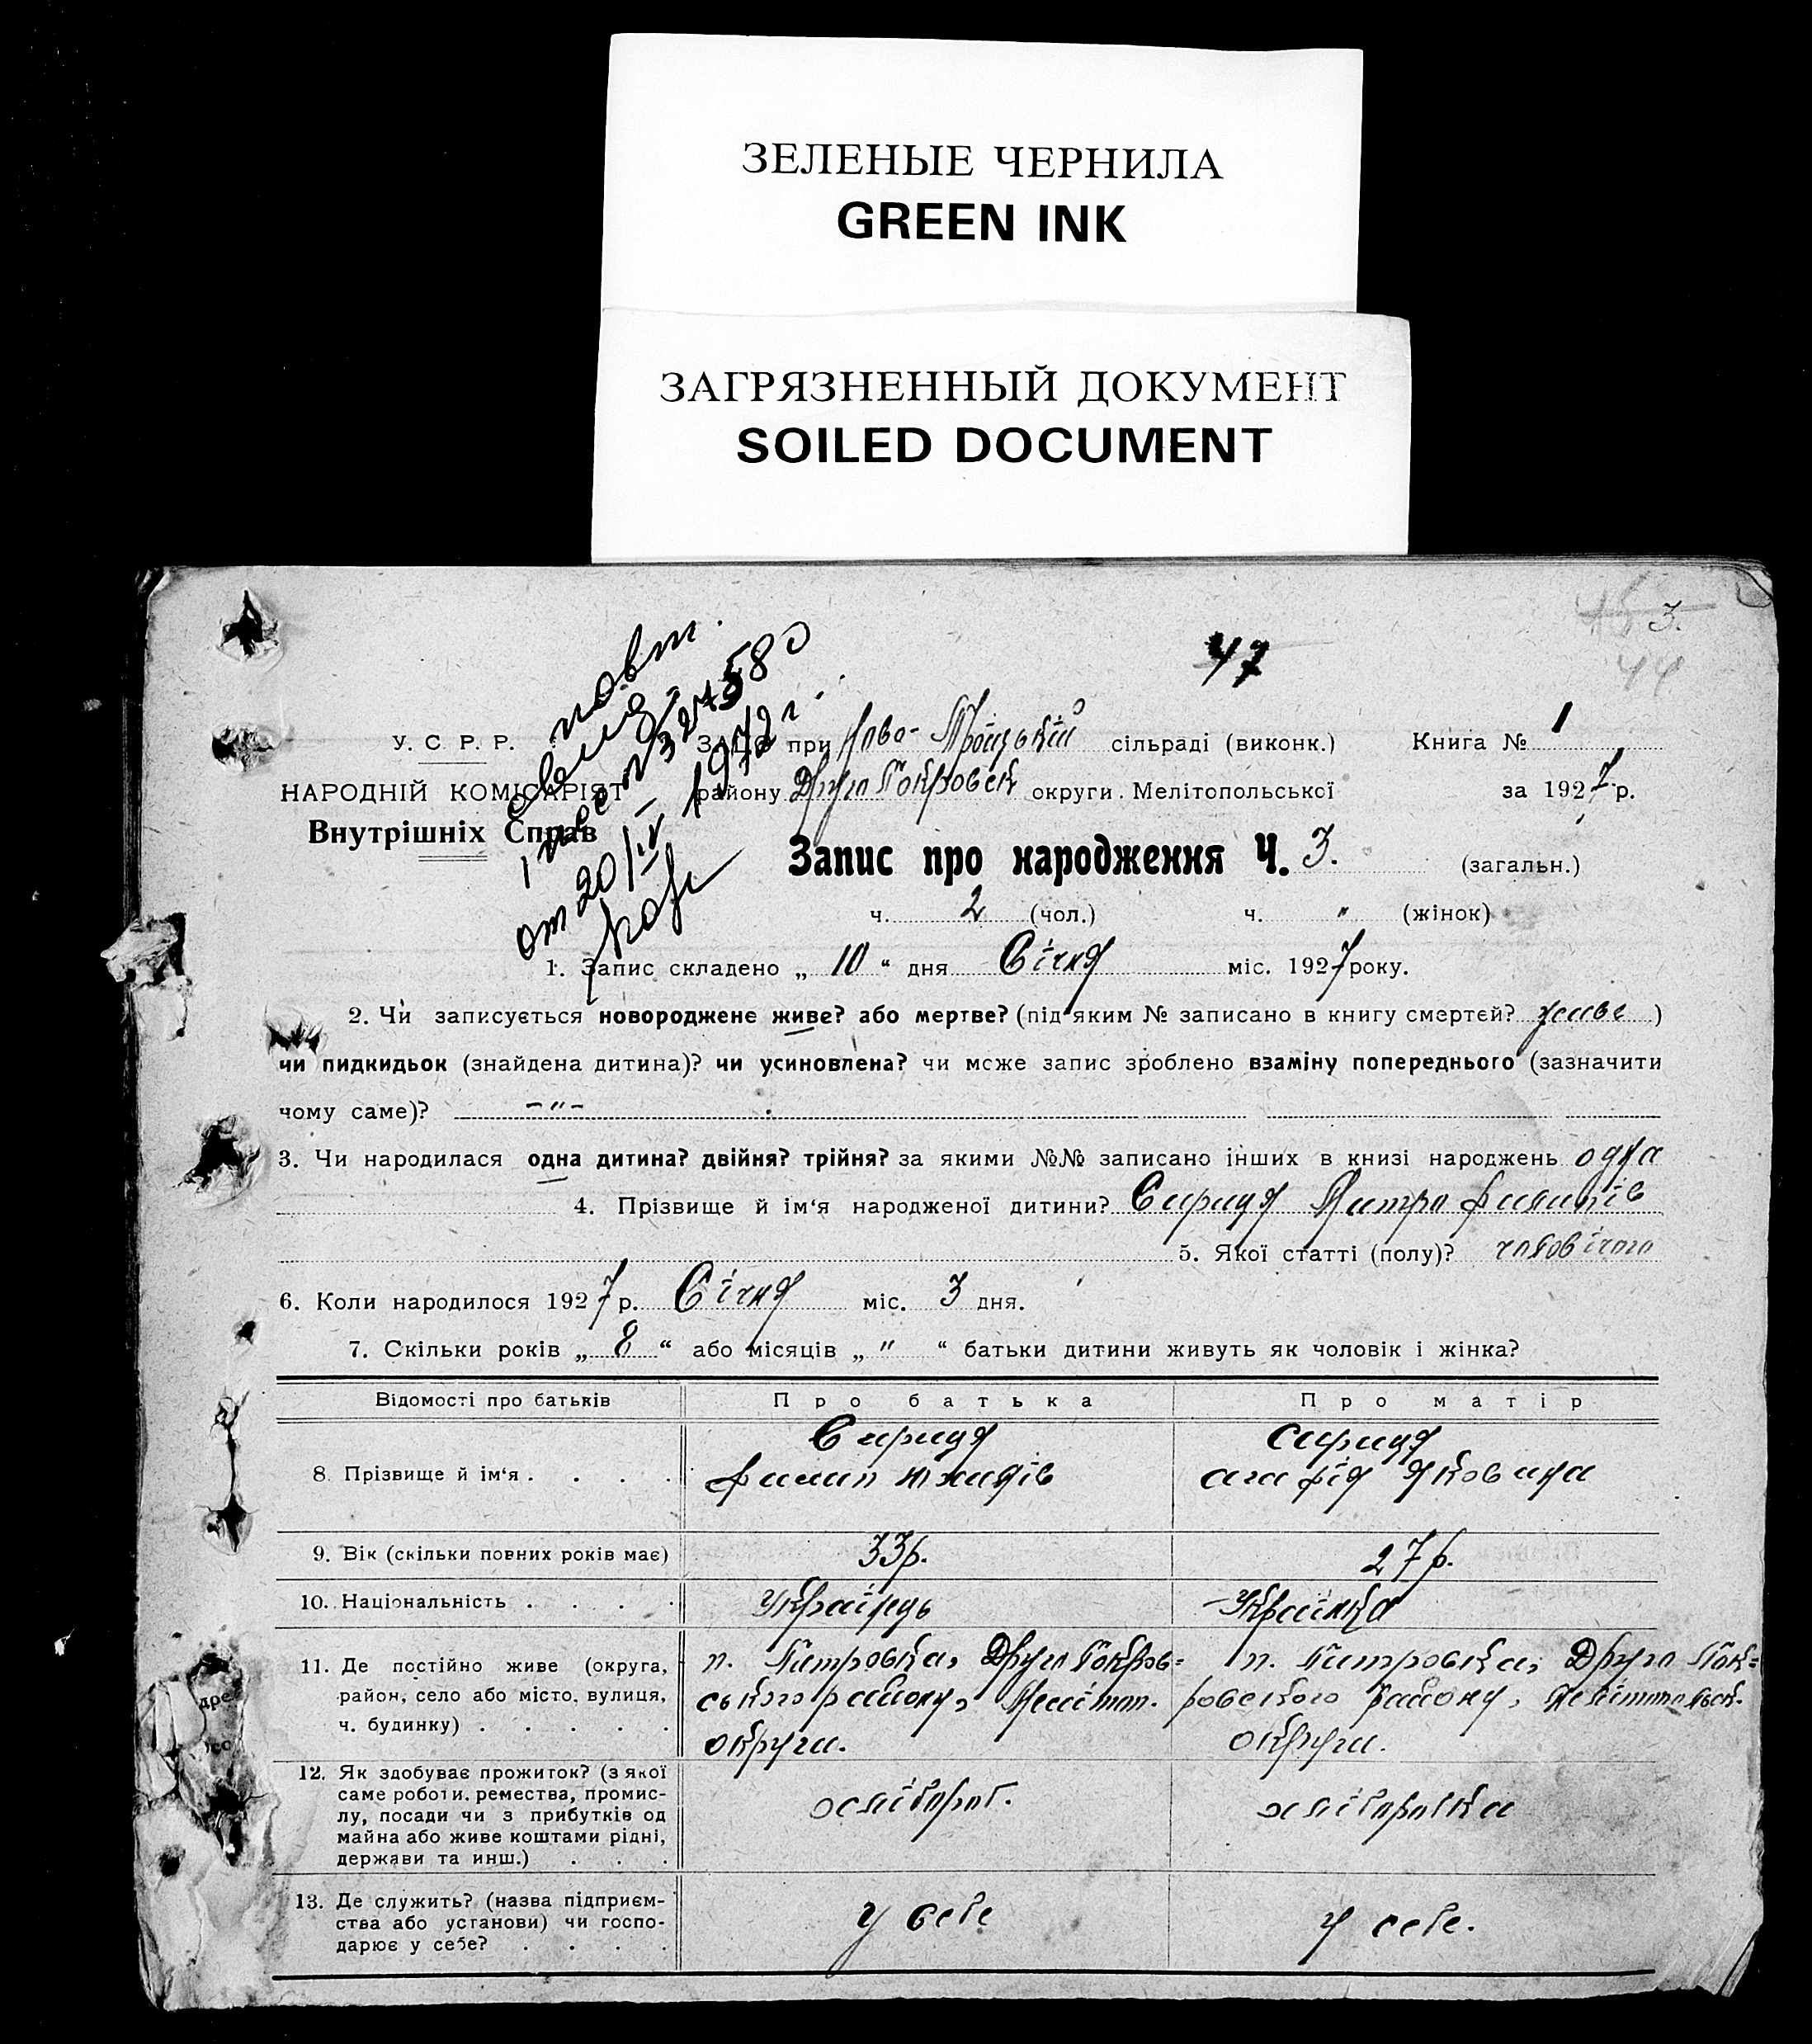 ЗЕЛЕНЫЕ ЧЕРНИЛА
GREEN INK
ЗАГРЯЗНЕННЫЙ ДОКУМЕНТ
SOILED DOCUMENT
3.
47
44
повт.
от 20/IV 1972 г.
У. С. Р. Р.
НАРОДНІЙ КОМІСАРІЯТ
Внутрішніх Справ
ЗАЦС при Ново-Троїцькій сільраді (виконк.) Книга № 1
району Друго Покровск округи Мелітопольської за 1927 р.
Запис про народження Ч. 3. (загальн.)
ч. 2 (чол.) ч. " (жінок)
1. Запис складено „ 10 “ дня Січня міс. 1927 року.
2. Чи записується новороджене живе? або мертве? (під яким № записано в книгу смертей? живе)
чи пидкидьок (знайдена дитина)? чи усиновлена? чи може запис зроблено взаміну попереднього (зазначити
чому саме)? -"-
3. Чи народилася одна дитина? двійня? трійня? за якими №№ записано інших в книзі народжень одна
4. Прізвище й ім‘я народженої дитини? Сириця Митро Филипів
5. Якої статті (полу)? чоловічого
6. Коли народилося 1927 р. Січня міс. 3 дня.
7. Скільки років „ 8 “ або місяців „ " “ батьки дитини живуть як чоловік і жінка?
Відомості про батьків Про батька Про матір
8. Прізвище й ім‘я . . . .
Сириця
Филип
Сириця
Агафія Яковина
9. Вік (скільки повних років має) 33 р. 27 р.
10. Національність . . . . Українець Українка
11. Де постійно живе (округа,
район, село або місто, вулиця,
ч. будинку) . . . . .
п. Питровка, Друго Покров=
ського району, Меліто́п.
округи.
п. Питровка, Друго Пок=
ровського району, Мелітопольськ.
округи.
12. Як здобуває прожиток? (з якої
саме роботи, ремества, промис-
лу, посади чи з прибутків од
майна або живе коштами рідні,
держави та инш.) . . .
хліборог.
хліборобка
13. Де служить? (назва підприєм-
ства або установи) чи госпо-
дарює у себе? . . . .
у себе
у себе.